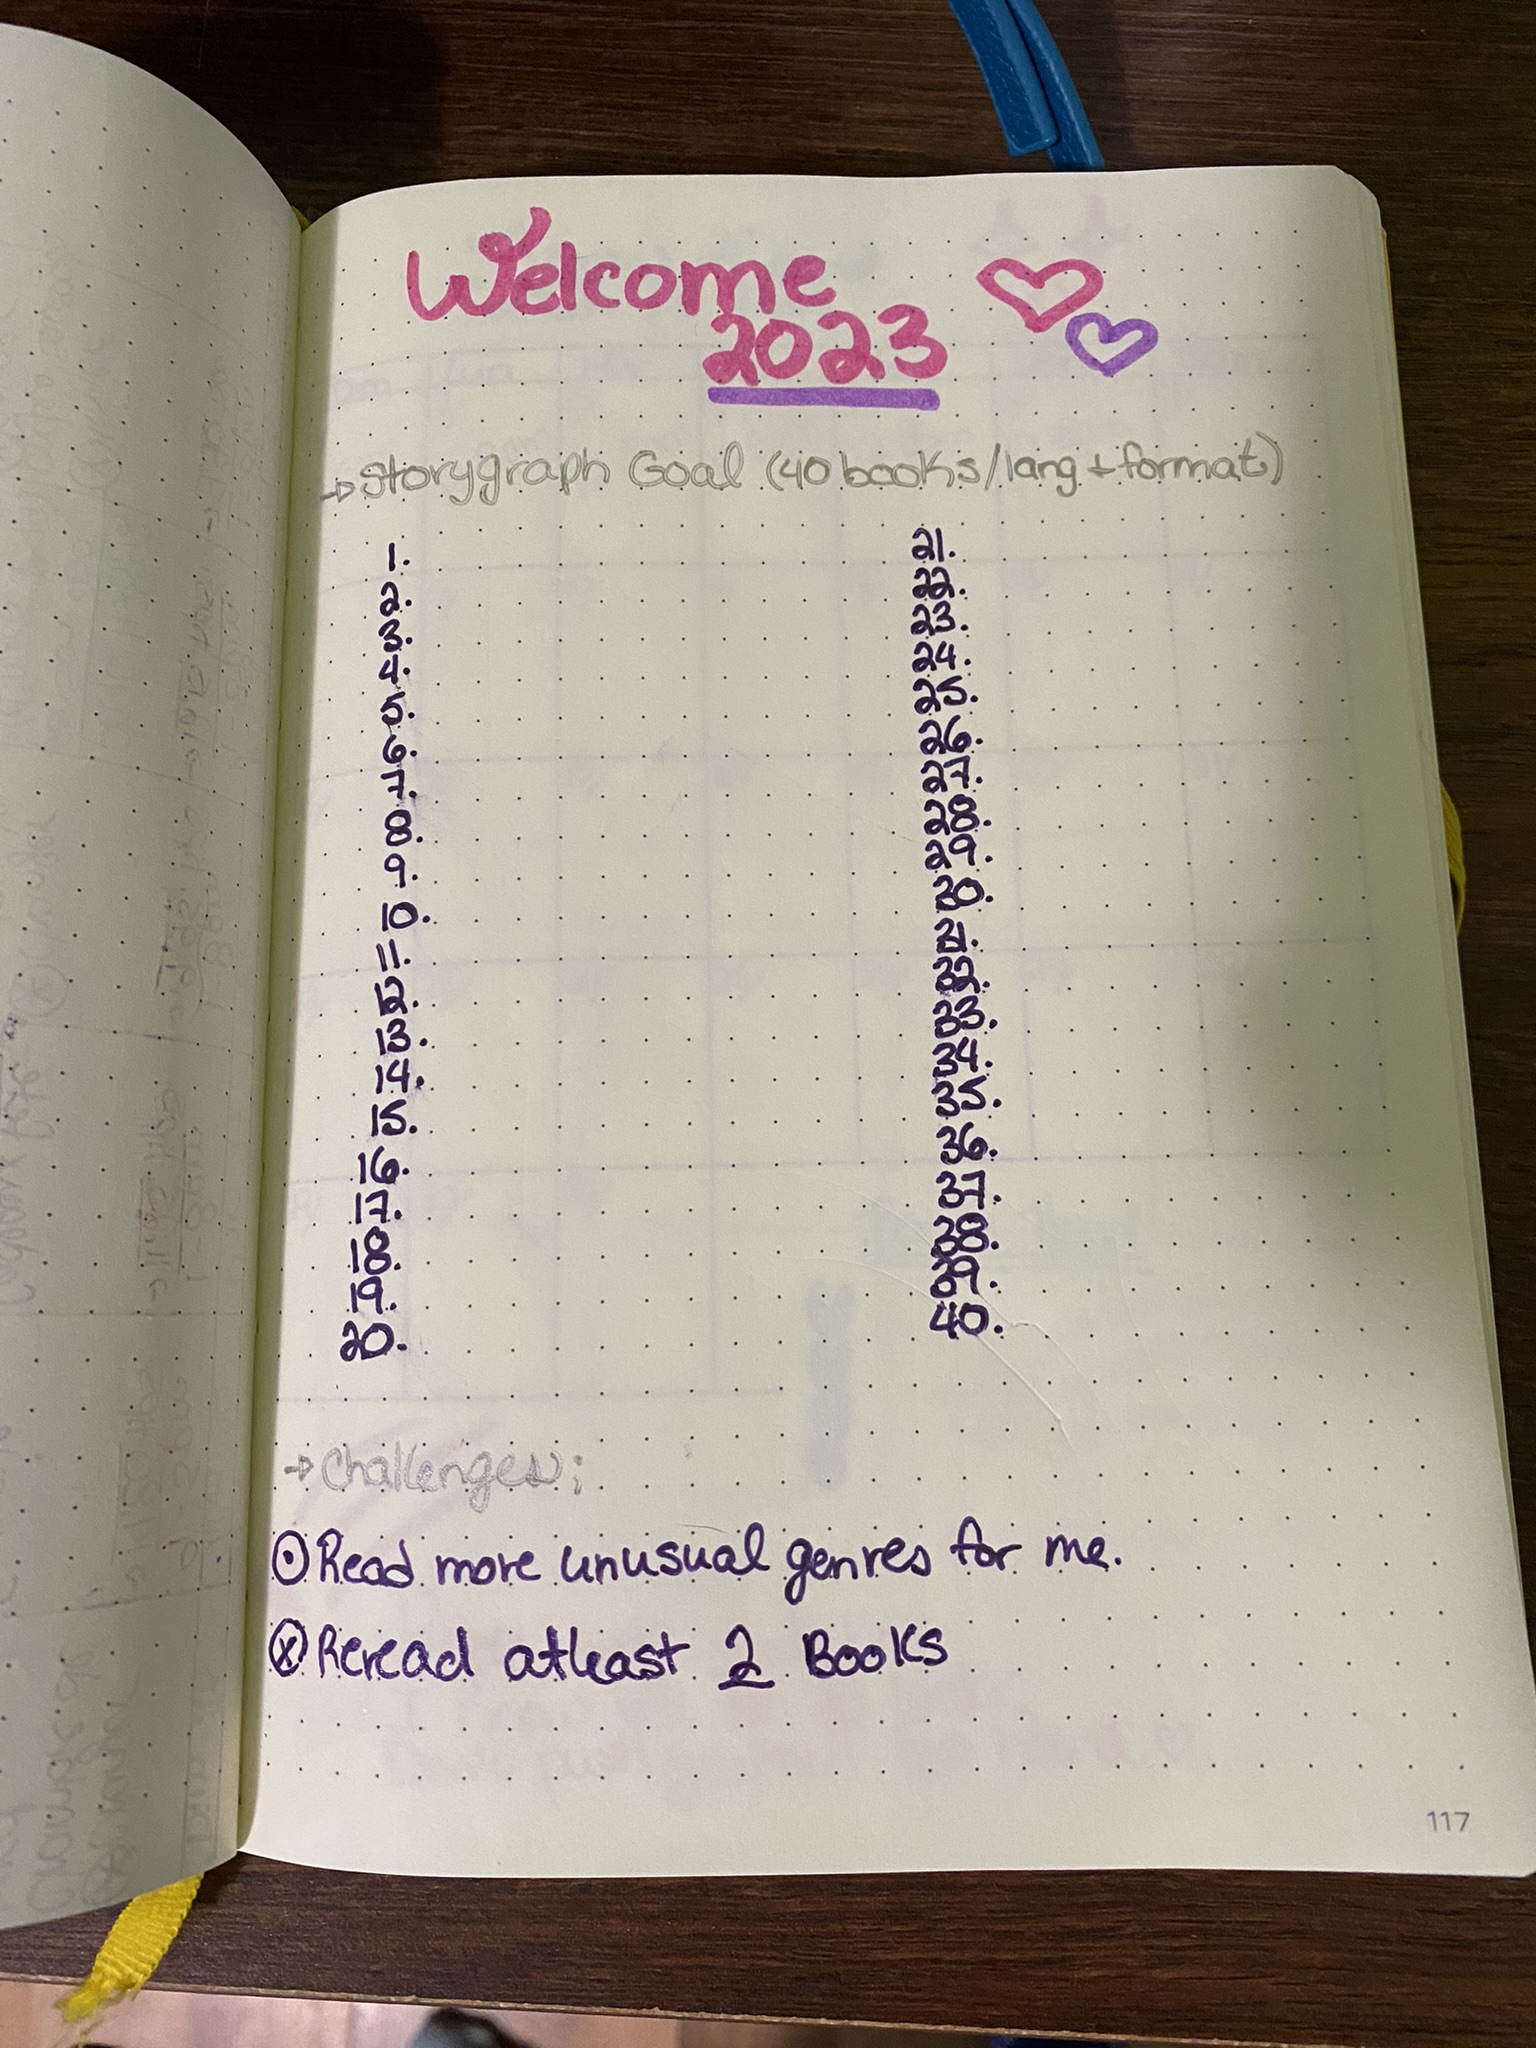 Welcome
2023
→ Storygraph Goal (40 books/lang + format)
1.
2.
3.
4.
5.
6.
7.
8.
9.
10.
11.
12.
13.
14.
15.
16.
17.
18.
19.
20.
21.
22.
23.
24.
25.
26.
27.
28.
29.
30.
31.
32.
33.
34.
35.
36.
37.
38.
39.
40.
→ Challenges;
Read more unusual genres for me.
Reread atleast 2 Books
117